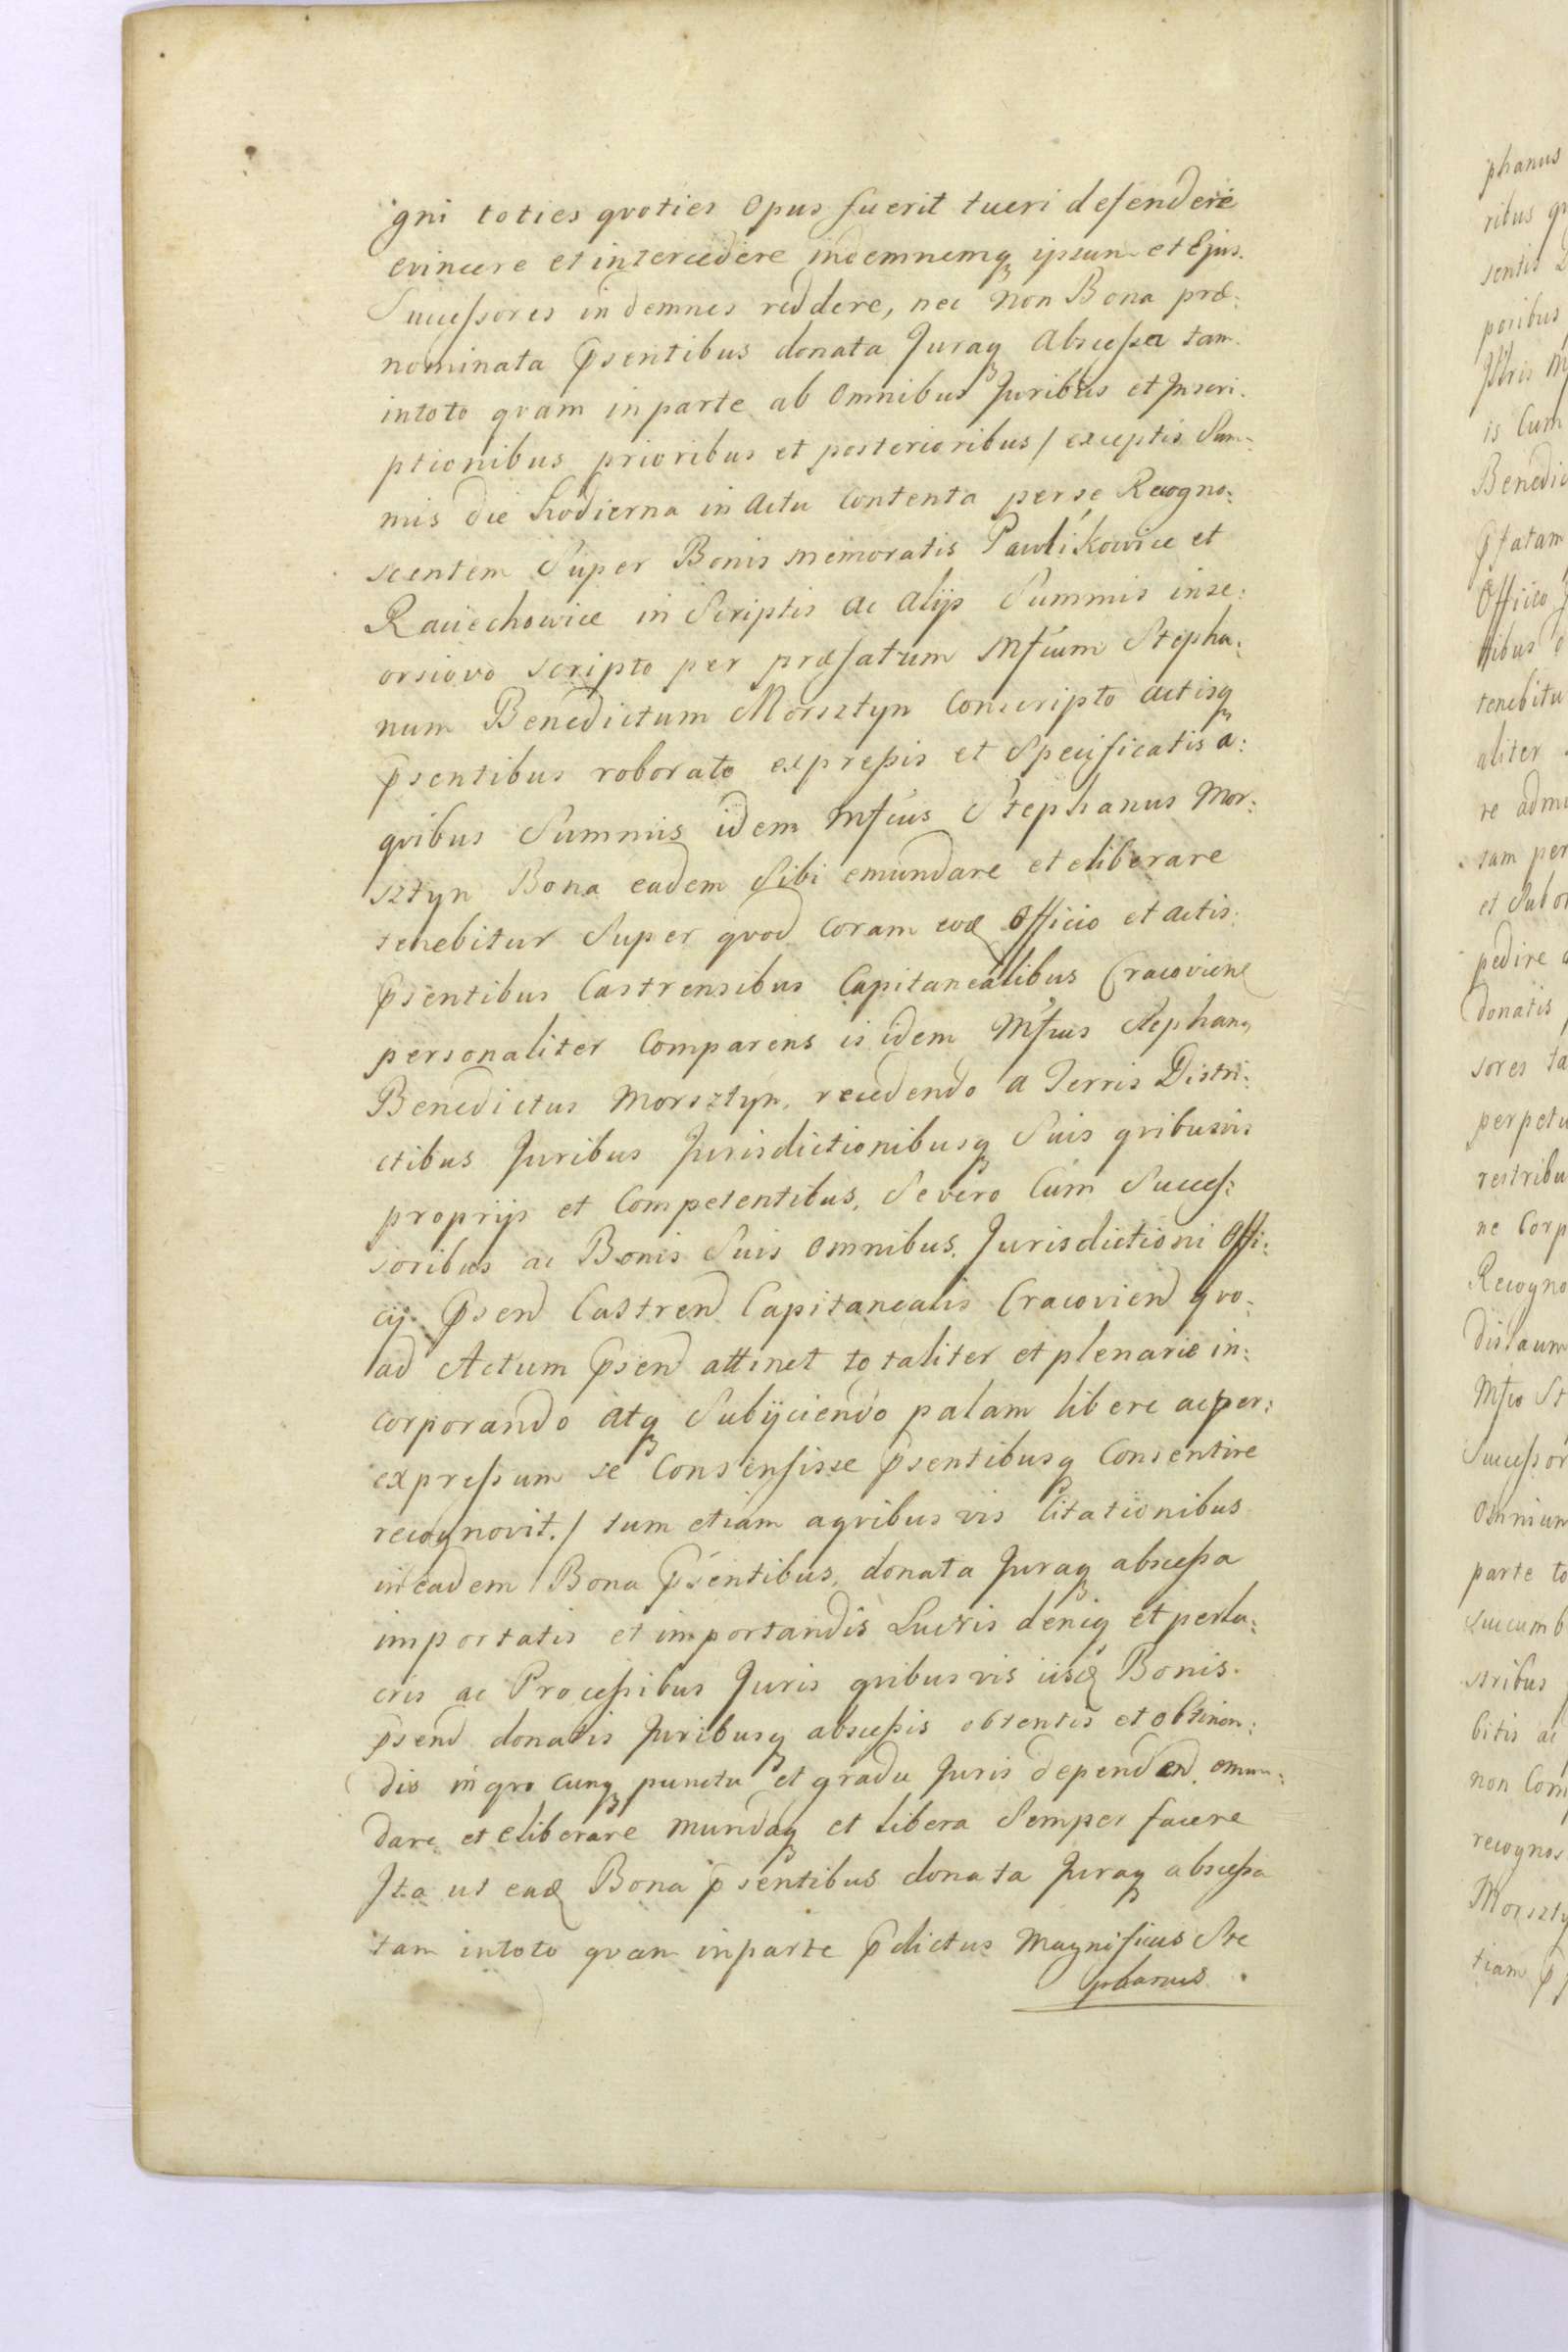 gni toties qvoties Opus fuerit tueri defendere
evincere et intercedere indemnemq ipsum et Ejus
Successores indemnes reddere, nec non Bona præ:
nominata psentibus donata Juraq Abscessa tam
intoto qvam inparte ab Omnibus Juribus et Inscri:
ptionibus prioribus et posterioribus / exceptis Sum:
mis die hodierna in Actu contenta per se Recogno:
scentem Super Bonis memoratis Pawlikowice et
Raciechowice in Scriptis ac alijs Summis inse:
orsivo scripto per præfatum Mfcum Stepha:
num Benedictum Morsztyn Conscripto actisq
psentibus roborato expressis et Specificatis a:
qvibus Summis idem Mfcus Stephanus Mor:
sztyn Bona eadem Sibi emundare et eliberare
tenebitur Super qvod coram eod Officio et actis
psentibus Castrensibus Capitanealibus Cracovien
personaliter Comparens is idem Mfcus Stephanq
Benedictus Morsztyn, recedendo a Terris Distri:
ctibus Juribus Jurisdictionibusq Suis qvibusvis
proprijs et Competentibus, Se vero Cum Succes:
soribus ac Bonis Suis omnibus Jurisdictioni Offi:
cij psend Castrend Capitanealis Cracoviend qvo:
ad Actum psend attinet totaliter et plenarie in:
corporando atq Subijciendo palam libere ac per:
expressum se Consensisse psentibusq Consentire
recognovit. / tum etiam aqvibus vis Citationibus
in eadem Bona psentibus donata Juraq abscessa
importatis et importandis Lucris deniq et perlu:
cris ac Processibus Juris qvibus vis iisd Bonis
psend donatis Juribusq abscessis obtentis et obtinen:
dis inqvo cunq punctu et gradu Juris dependend. emun:
dare et eliberare mundaq et libera Semper facere
Ita ut ead Bona psentibus donata Juraq abscessa
tam intoto qvam inparte pdictus Magnificus Ste
phanus
phanus
ribus
sentis
poribus
is Cum
Benedic
pstatam
Officio
tenebitu
aliter
re admi
sam per
et Subor
pedire
donatis
sores ta
perpetu
restribu
ne Corp
Recogno
dislaum
Mfco St
Successor
Omnium
parte to
succumb
stribus
bitis ac
non Com
recognos
Morszty
tiam